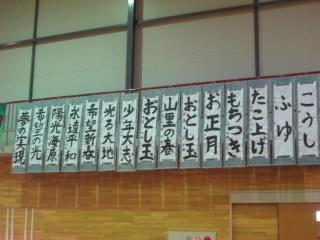 こうし
ふゆ
たこ上げ
もちつき
お正月
おとし玉
山里の春
おとし玉
少年大志
光る大地
希望新春
永遠平和
陽光海原
希望の光
夢の実現